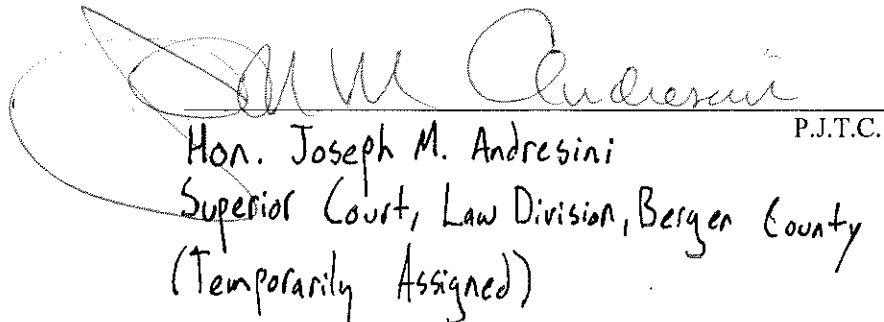 Joseph M Andresini
P.J.T.C.
Hon. Joseph M. Andresini
Superior Court, Law Division, Bergen County
(Temporarily Assigned)